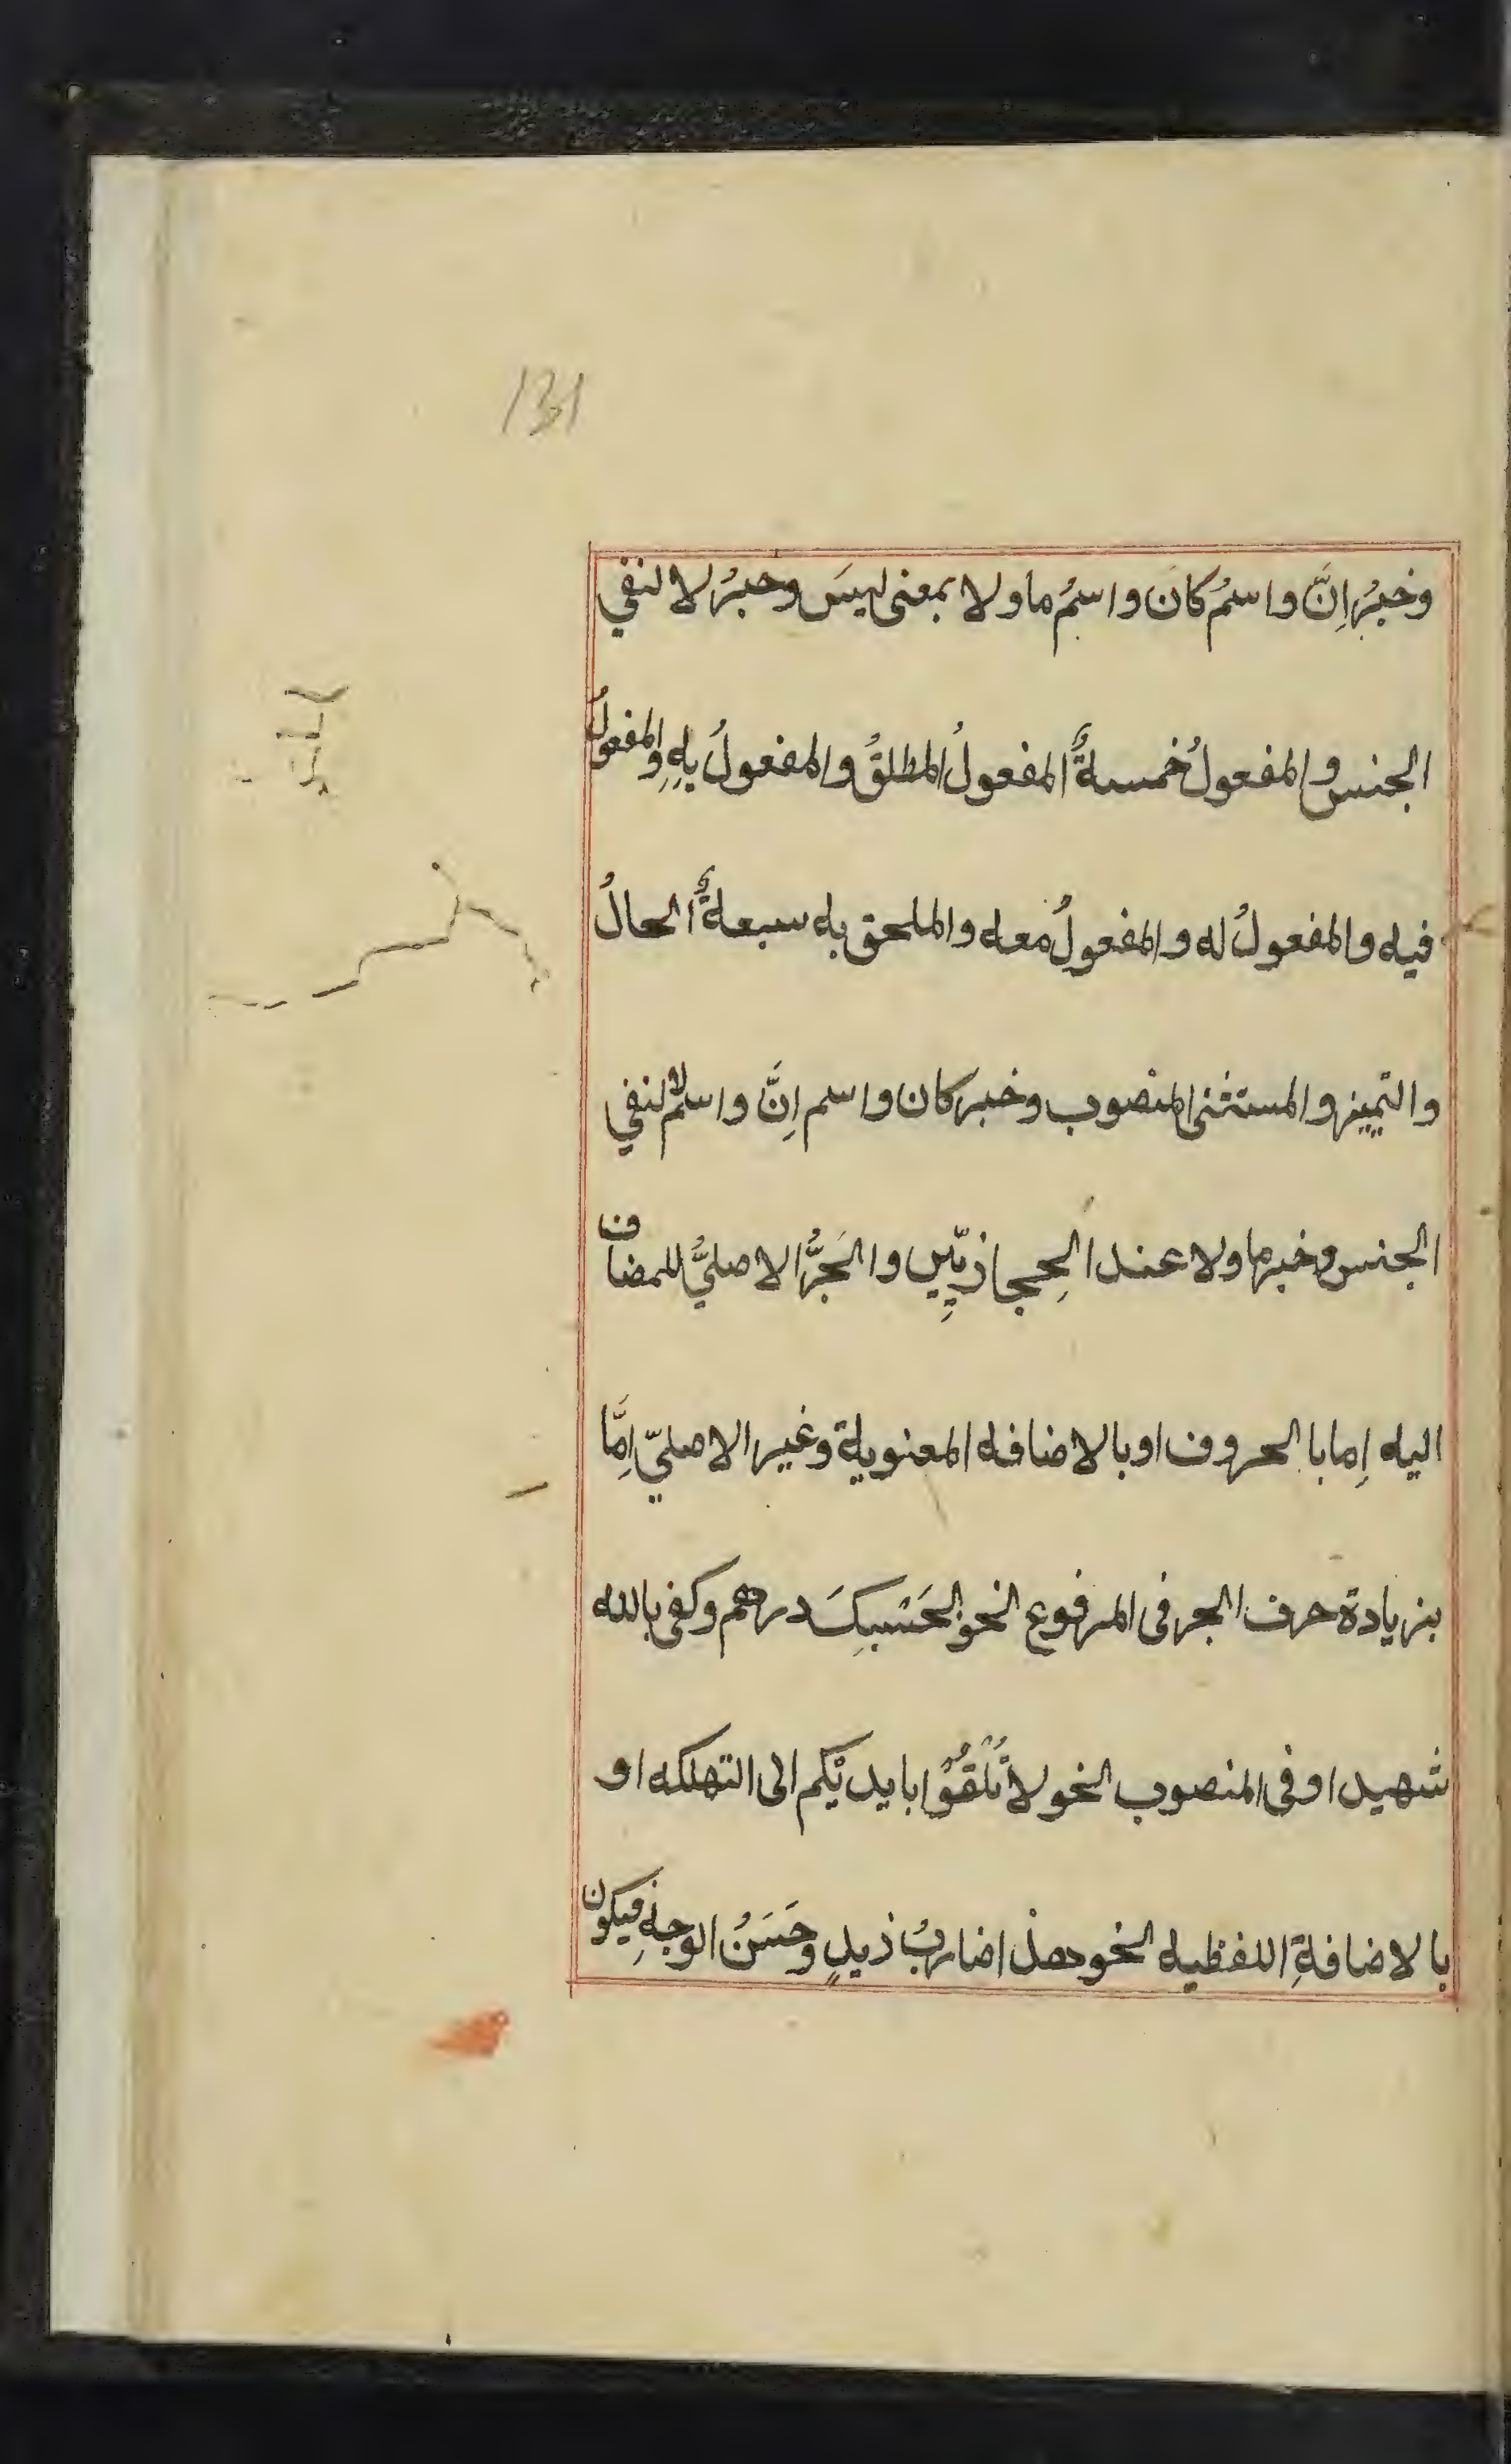 131
وخبرُ اِنَّ واسمُ كانَ واسمُ ما ولا بمعنى ليسَ وخبرُ لا لنفي
الجنس والمفعولُ خمسةٌ المفعولُ المطلقُ والمفعولُ بِهِ والمفعولُ
فيه والمفعولُ له والمفعولُ معه والملحق به سبعةٌ الحالُ
والتمييز والمستثنى المنصوب وخبر كان واسم اِنَّ واسم لا لنفي
الجنس وخبر ما ولا عند الحِجازيّينِ والجَرُّ الاصليُّ للمضاف
اليه اِما با الحروف او بالاضافه المعنوية وغير الاصليّ اِمَّا
بزيادة حرف الجر فى المرفوع النحو الحَسْبِكَ درهم وكفى بالله
شهيدا وفى المنصوب النحو لا تُلْقُوْا بايديْكم الى التهلكه او
بالاضافةِ اللفظيه النحو هذا ضاربُ زيدٍ وحَسَنُ الوجهِ فيكون